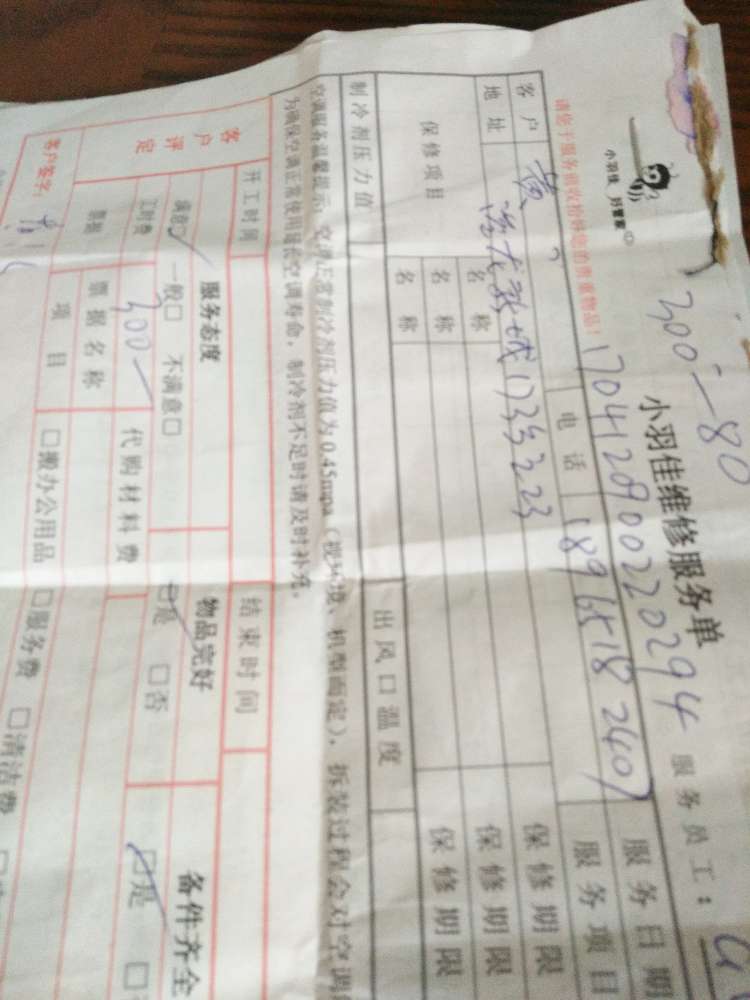 300—80
小羽佳 好管家
小羽佳维修服务单
1704120900220294 服务员工：
请您于服务前收拾好您的贵重物品！
客户 黄 电话 18965182407 服务日期
地址 龙新城 服务项目
保修项目 名称 保修期限
名称 保修期限
名称 保修期限
制冷剂压力值 出风口温度
空调服务温馨提示：空调正常制冷剂压力值为0.45mpa（视环境、机型而定），拆装过程会对空调
为确保空调正常使用延长空调寿命，制冷剂不足时请及时补充。
开工时间 结束时间
客户评定 服务态度 物品完好 备件齐全
满意□ 一般□ 不满意□ □是 □否 □是 □
工时费 300— 代购材料费
票据 票据名称
项目 □搬办公用品 □服务费 □清洁费
客户签字：